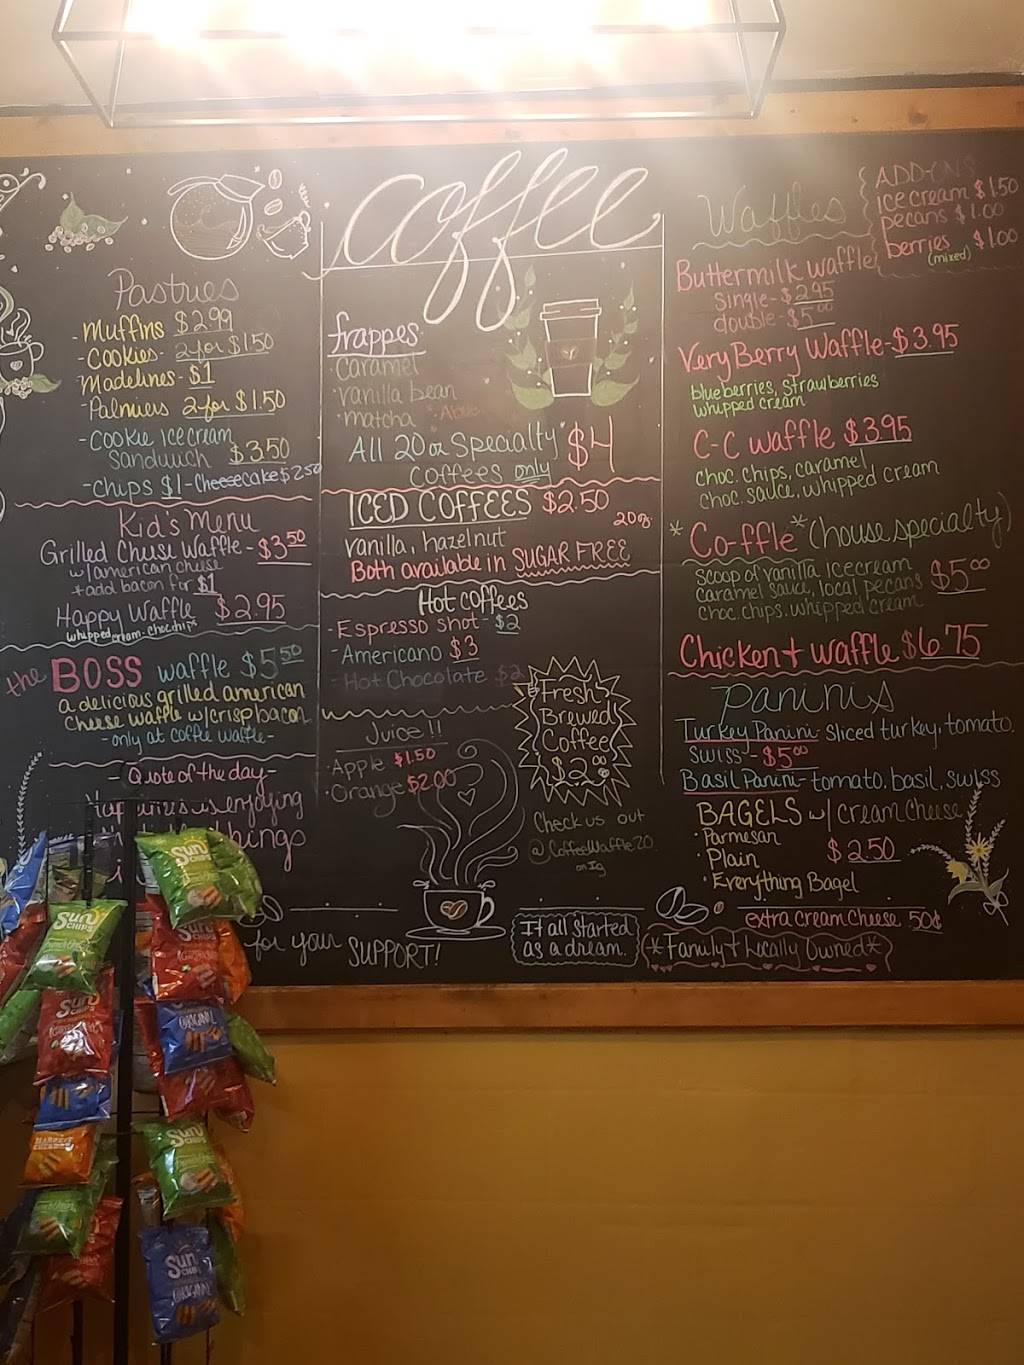 Pastries
- Muffins $2.99
- Cookies - 2 for $1.50
Madelines - $1
- Palmiers 2 for $1.50
- Cookie ice cream
Sandwich $3.50
- Chips $1 - Cheesecake $2.50
Kid's Menu
Grilled Cheese Waffle - $3.50
w/american cheese
+ add bacon for $1
Happy Waffle $2.95
whipped cream. choc. chips
the BOSS waffle $5.50
a delicious grilled american
Cheese waffle w/ crisp bacon
- only at coffee waffle -
- Quote of the day -
Happiness is enjoying
things
for your SUPPORT!
Coffee
frappes
· Caramel
· vanilla bean
· matcha
All 20oz Specialty $4
Coffees only
ICED COFFEES $2.50
20oz
vanilla, hazelnut
Both available in SUGAR FREE
Hot coffees
- Espresso shot - $2
- Americano $3
- Hot Chocolate $2
Juice!!
· Apple $1.50
· Orange $2.00
Fresh
Brewed
Coffee
$2.00
Check us out
@CoffeeWaffle20
on Ig
It all started
as a dream.
Waffles
ADD-ONS
ice cream $1.50
pecans $1.00
berries $1.00
(mixed)
Buttermilk waffle
Single - $2.95
double - $5.00
Very Berry Waffle - $3.95
blueberries, strawberries
whipped cream
C-C waffle $3.95
choc. chips, caramel
choc sauce, whipped cream
*Co-ffle* (house specialty)
scoop of vanilla icecream
caramel sauce, local pecans $5.00
choc. chips. whipped cream
Chicken + waffle $6.75
Paninis
Turkey Panini - sliced turkey, tomato.
Swiss - $5.00
Basil Panini - tomato, basil, swiss
BAGELS w/ cream cheese
· Parmesan
· Plain $2.50
· Everything Bagel
extra cream cheese .50¢
*Family + Locally Owned*
Sun
CHIPS
Sun
CHIPS
Sun
CHIPS
ORIGINAL
Sun
CHIPS
Sun
CHIPS
ORIGINAL